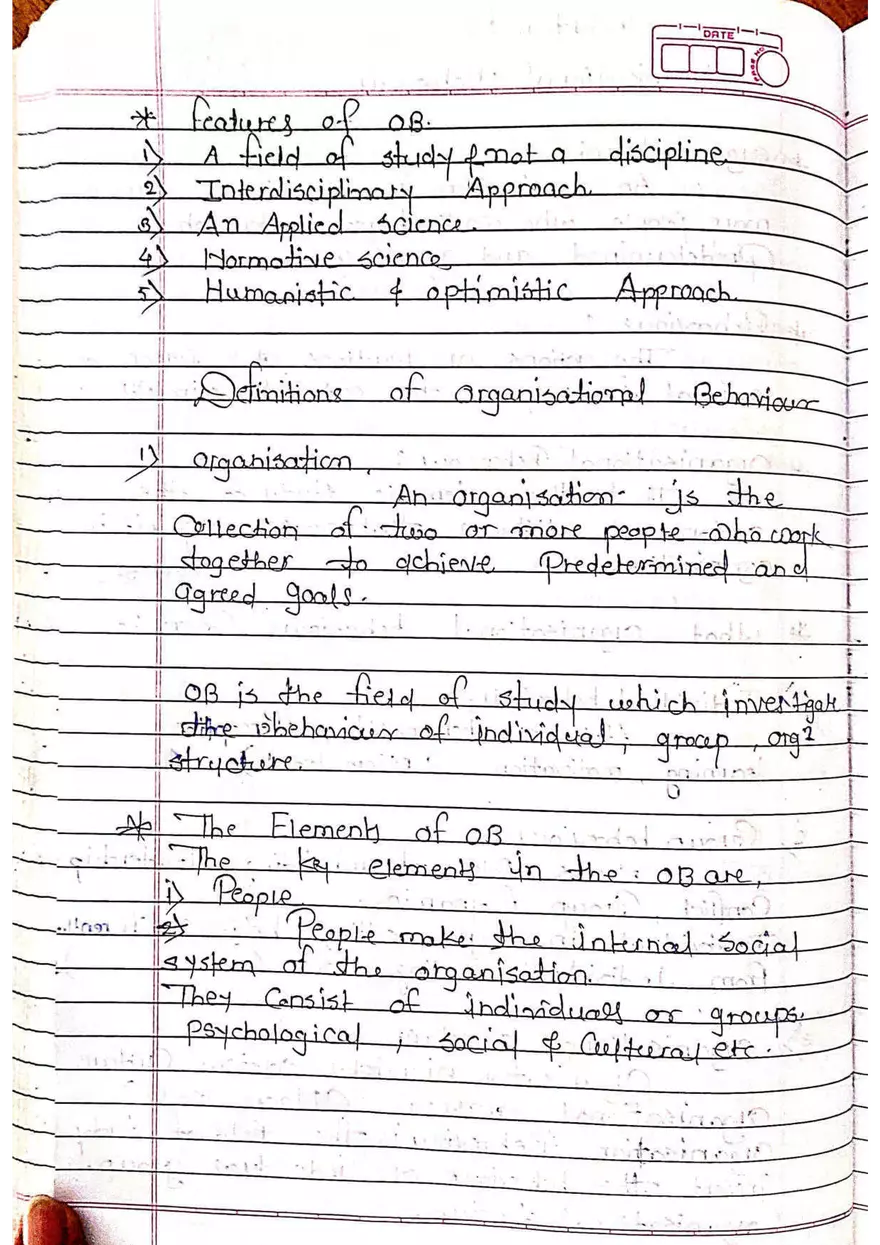 DATE
PAGE NO.
* Features of OB.
1) A field of study & not a discipline
2) Interdisciplinary Approach.
3) An Applied science.
4) Normative science
5) Humanistic & optimistic Approach.
Definitions of organisational Behaviour
1) organisation,
An organisation is the
Collection of two or more people who work
together to achieve Predetermined and
agreed goals.
OB is the field of study which investigate
the behaviour of individual, group, org²
structure.
* The Elements of OB
The key elements in the OB are,
i) People
2) People make the internal social
system of the organisation.
They Consist of individuals or groups.
psychological, social & Cultural etc.